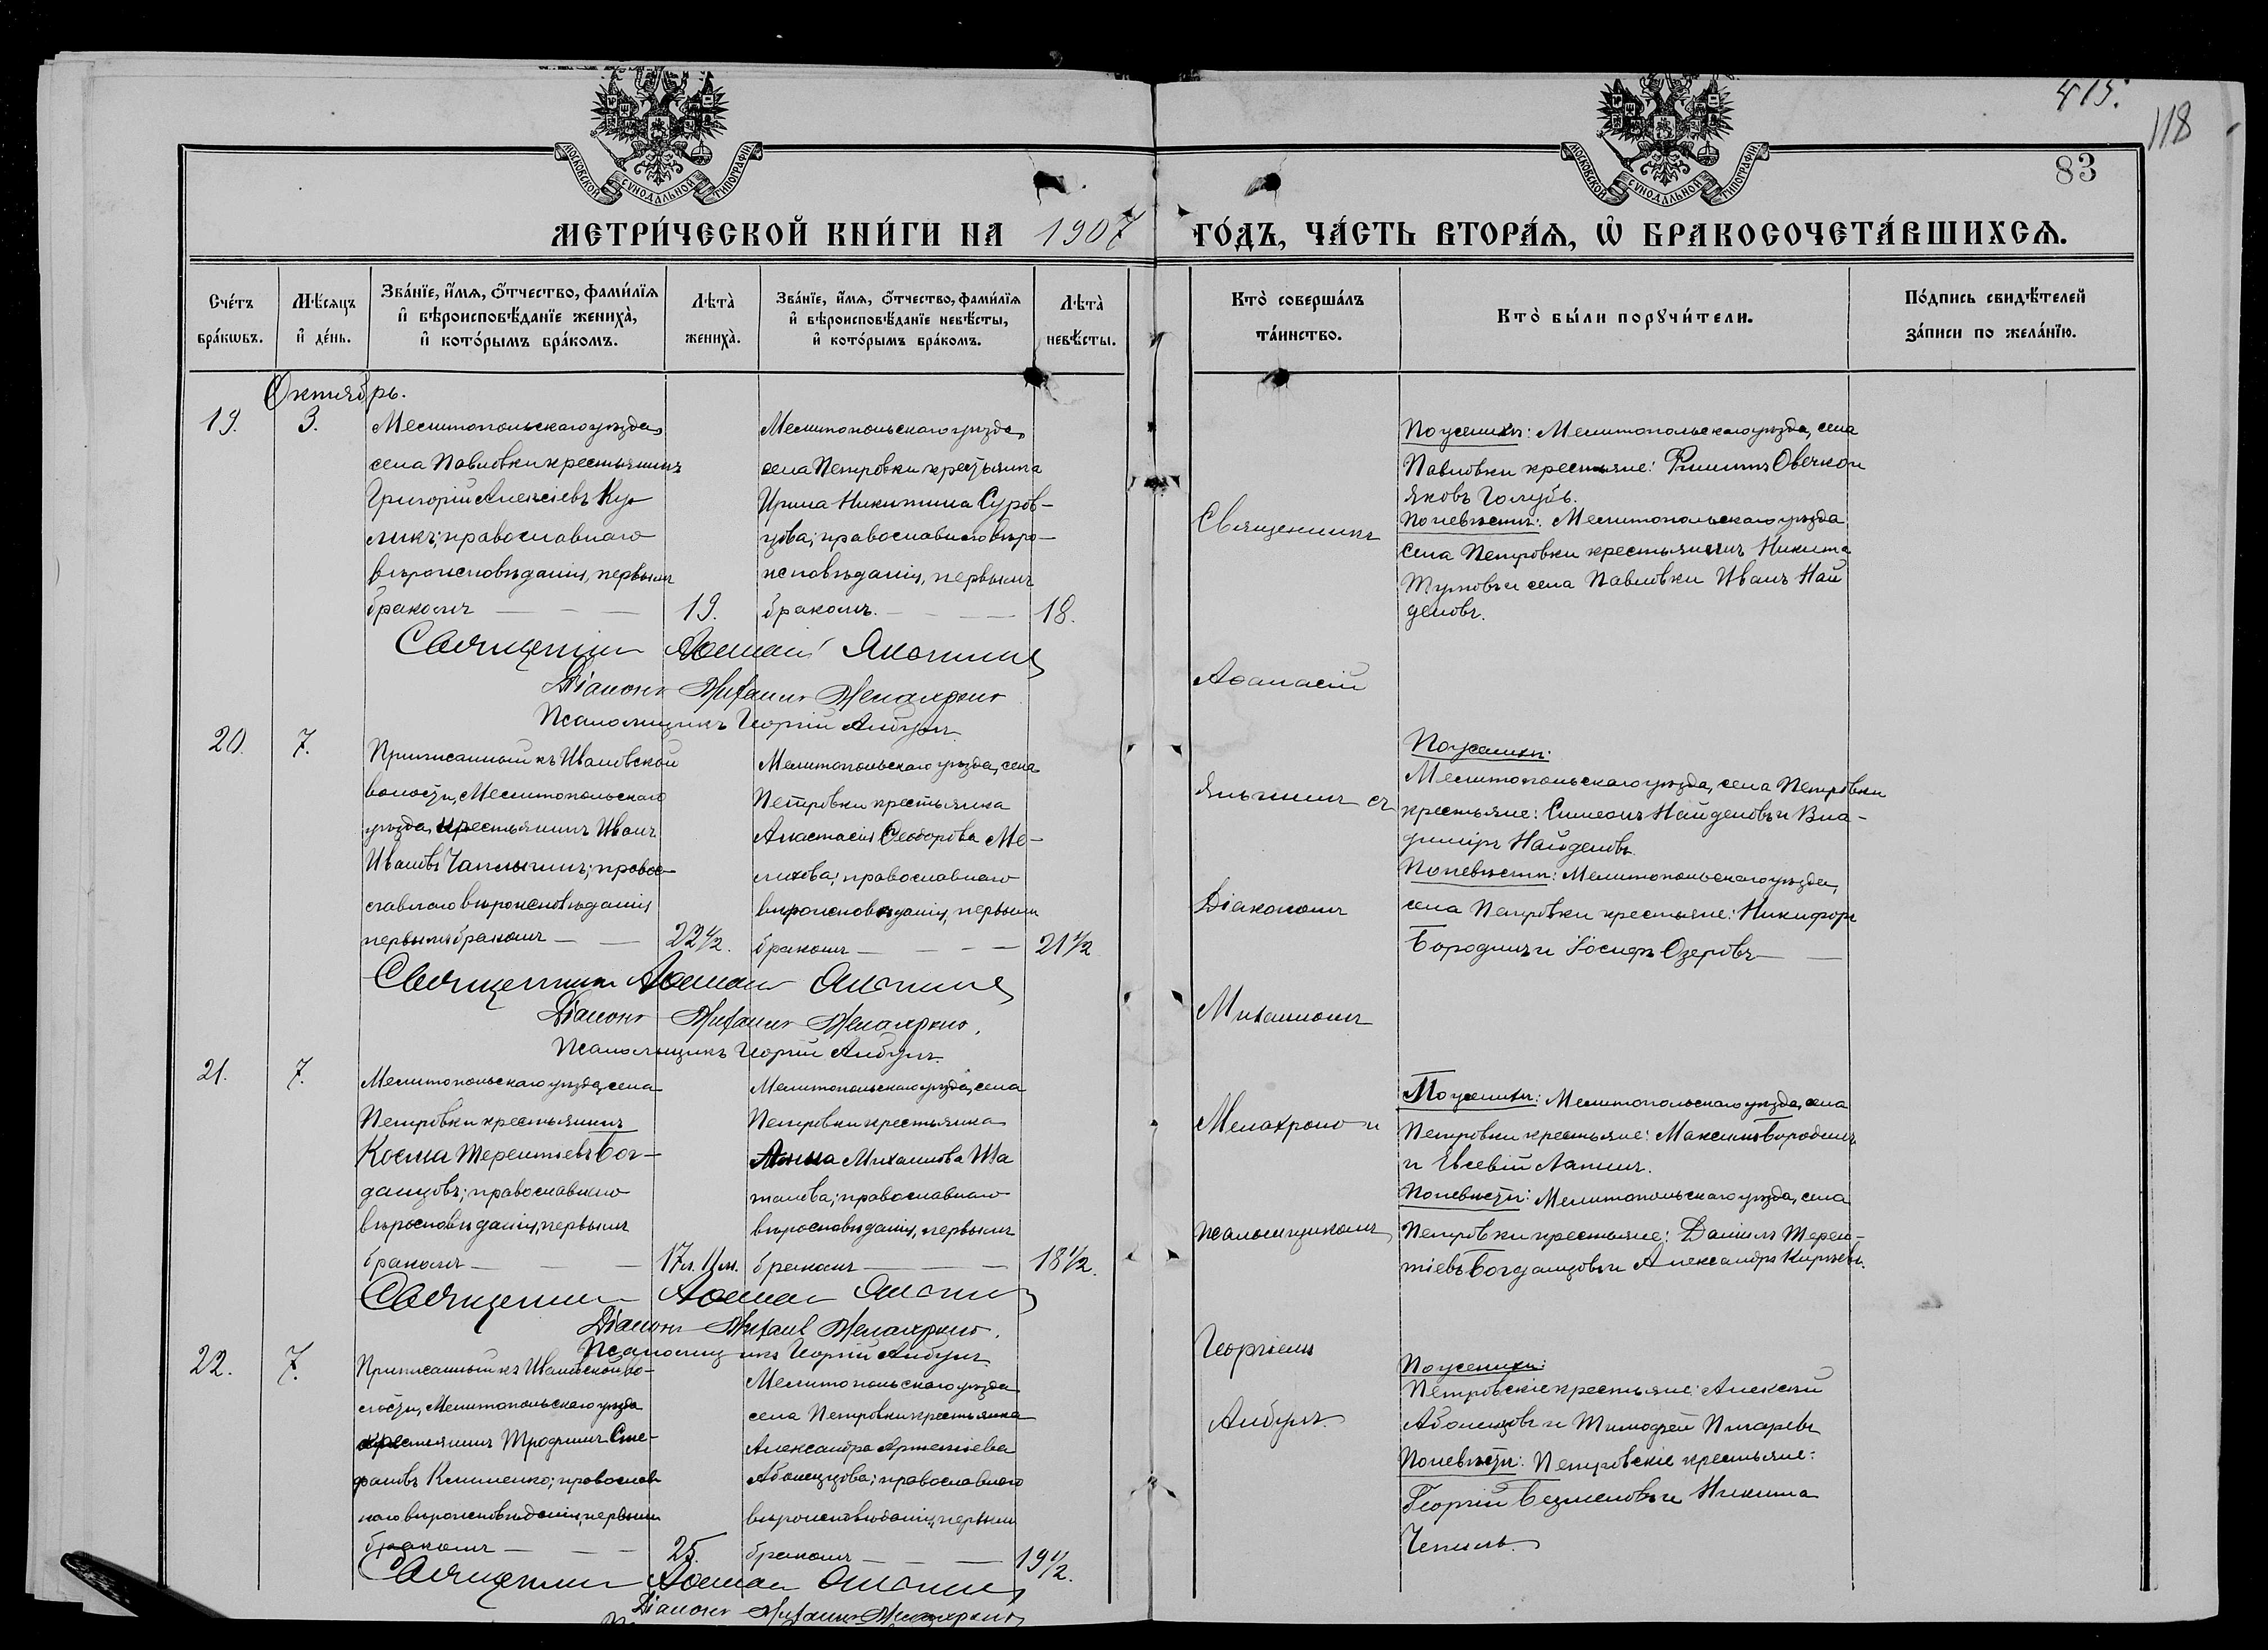 415.
118
83
МОСКОВСКОЙ СѴНОДАЛЬНОЙ ТИПОГРАФІИ
МОСКОВСКОЙ СѴНОДАЛЬНОЙ ТИПОГРАФІИ
МЕТРИ́ЧЕСКОЙ КНИ́ГИ НА 1907 ГО́ДЪ, ЧА́СТЬ ВТОРА́Ѧ, Ѡ БРАКОСОЧЕТА́ВШИХСѦ.
Сче́тъ бра́кѡвъ.
Мѣ́сяцъ и҆ де́нь.
Зва́нїе, и҆́мѧ, ѻ҆́тчество, фами́лїѧ и҆ вѣроисповѣ́данїе жениха̀, и҆ кото́рымъ бра́комъ.
Лѣта̀ жениха̀.
Зва́нїе, и҆́мѧ, ѻ҆́тчество, фами́лїѧ и҆ вѣроисповѣ́данїе невѣ́сты, и҆ кото́рымъ бра́комъ.
Лѣта̀ невѣ́сты.
Кто̀ соверша́лъ та́инство.
Кто̀ бы́ли порꙋчи́тели.
По́дпись свидѣ́телей за́писи по жела́нїю.
Октябрь.
19.
3.
Мелитопольскаго уѣзда,
села Павловки крестьянинъ
Григорій Алексіевъ Ку-
ликъ; православнаго
вѣроисповѣданія, первымъ
бракомъ
19.
Мелитопольскаго уѣзда,
села Петровки крестьянка
Ирина Никитина Суров-
цова; православнаго вѣро-
исповѣданія, первымъ
бракомъ.
18.
По женихѣ: Мелитопольскаго уѣзда, села
Павловки крестьяне: Филиппъ Овечкои
Яковъ Голубь.
По невѣстѣ: Мелитопольскаго уѣзда
села Петровки крестьянинъ Никита
и села Павловки Иванъ Най
деновъ.
Священникъ
Діаконъ Михаилъ Мелахроно
Псаломщикъ Георгій Анбулъ
20.
7.
Приписанный къ Ивановской
волости, Мелитопольскаго
уѣзда, крестьянинъ Иванъ
Ивановъ Чаплыгинъ; право-
славнаго вѣроисповѣданія
первымъ бракомъ
22 1/2.
Мелитопольскаго уѣзда, села
Петровки крестьянка
Анастасія Ѳеодорова Ме-
лихова; православнаго
вѣроисповѣданія, первымъ
бракомъ
21 1/2
По женихѣ:
Мелитопольскаго уѣзда, села Петровки
крестьяне: Симеонъ Найденовъ и Вла-
диміръ Найденовъ.
По невѣстѣ: Мелитопольскаго уѣзда,
села Петровки крестьяне: Никифоръ
Бородинъ и Іосифъ Озеровъ
Священникъ
Діаконъ Михаилъ Мелахроно.
Псаломщикъ Георгій Анбулъ.
21.
7.
Мелитопольскаго уѣзда, села
Петровки крестьянинъ
Косма Терентіевъ Бог-
данцовъ; православнаго
вѣроисповѣданія, первымъ
бракомъ
17 л. 11 м.
Мелитопольскаго уѣзда, села
Петровки крестьянка
Анна Михаилова Ша
талова; православнаго
вѣроисповѣданія, первымъ
бракомъ
18 1/2.
По женихѣ: Мелитопольскаго уѣзда, села
Петровки крестьяне: Максимъ Бородинъ
и Евсевій Лапинъ.
По невѣстѣ: Мелитопольскаго уѣзда, села
Петровки крестьяне: Даніилъ Терен-
тіевъ Богданцовъ и Александръ Кирѣевъ.
Священникъ
Діаконъ Михаилъ Мелахроно.
Псаломщикъ Георгій Анбулъ
22.
7.
Приписанный къ Ивановской во-
лости, Мелитопольскаго уѣзда
крестьянинъ Трофимъ Сте-
фановъ Клименко; православ
наго вѣроисповѣданія, первымъ
бракомъ
25.
Мелитопольскаго уѣзда
села Петровки крестьянка
Александра Артемиева
Аболенцова; православнаго
вѣроисповѣданія, первымъ
бракомъ
19 1/2.
По женихѣ:
Петровскіе крестьяне: Алексѣй
Аболенцовъ и Тимофей Пигаревъ
По невѣстѣ: Петровскіе крестьяне:
Георгій Безменовъ и Никита
Чепиль.
Священникъ
Діаконъ Михаилъ Мелахроно
Священникъ
Аѳанасій
Яньшинъ съ
Діакономъ
Михаиломъ
Мелахроно и
псаломщикомъ
Георгіемъ
Анбулъ.